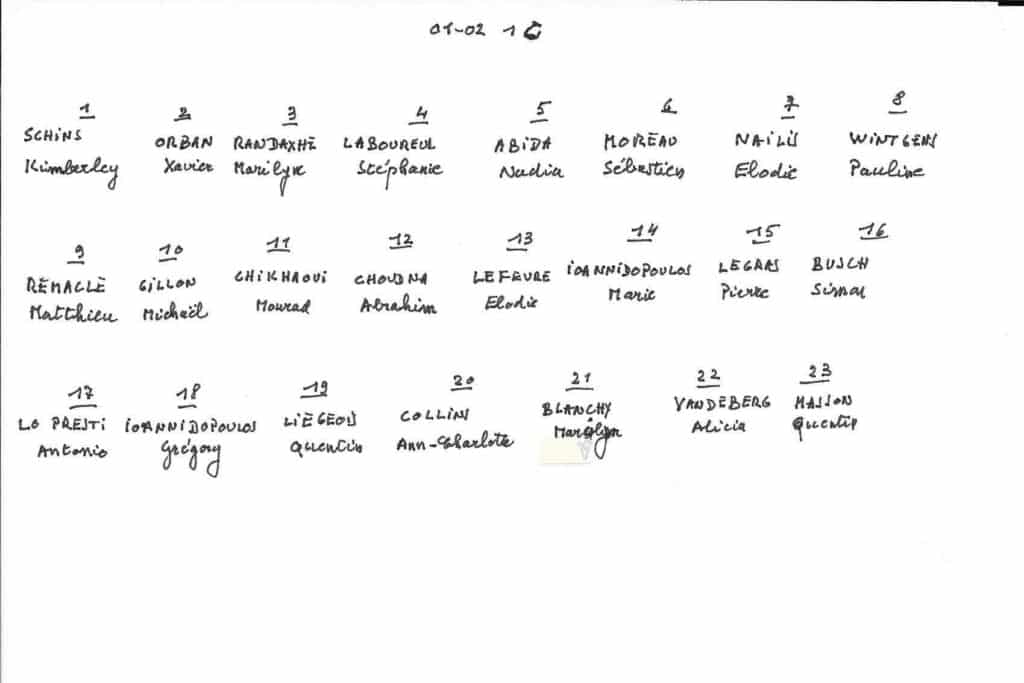 01-02 1C
1 2 3 4 5 6 7 8
SCHINS ORBAN RANDAXHE LABOUREUL ABIDA MOREAU NAILIS WINTGENS
Kimberley Xavier Marilyne Stéphanie Nadia Sébastien Elodie Pauline
9 10 11 12 13 14 15 16
REMACLE GILLON CHIKHAOUI CHOUDNA LEFEVRE IOANNIDOPOULOS LEGRAS BUSCH
Matthieu Michaël Mourad Abrahim Elodie Marie Pierre Simon
17 18 19 20 21 22 23
LO PRESTI IOANNIDOPOULOS LIEGEOIS COLLINS BLANCHY VANDEBERG MASSON
Antonio Grégory Quentin Ann-Charlote Alicia Quentin